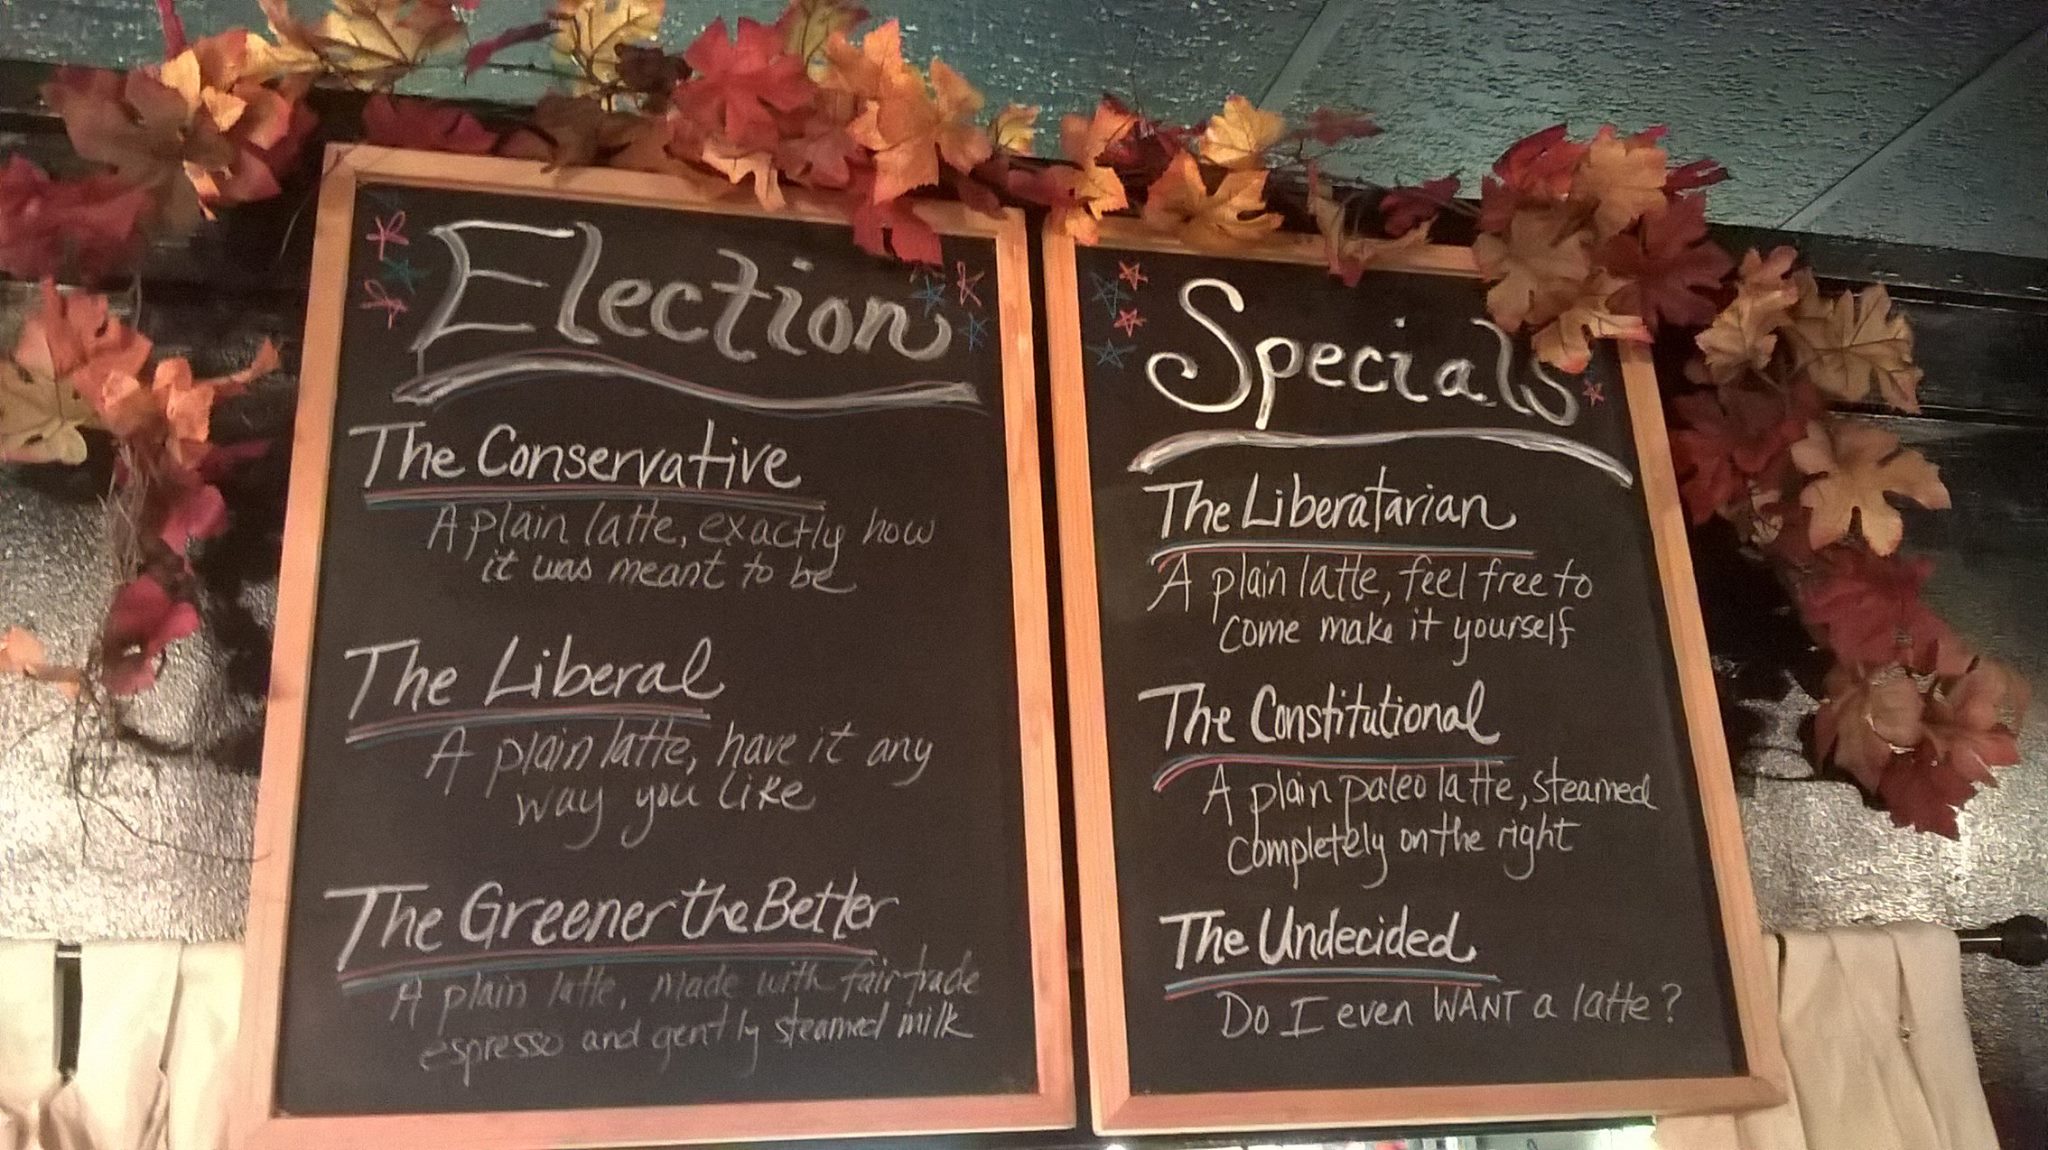 Election
The Conservative
A plain latte, exactly how
it was meant to be
The Liberal
A plain latte, have it any
way you like
The Greener the Better
A plain latte, made with fair trade
espresso and gently steamed milk
Specials
The Liberatarian
A plain latte, feel free to
come make it yourself
The Constitutional
A plain paleo latte, steamed
completely on the right
The Undecided
Do I even WANT a latte?